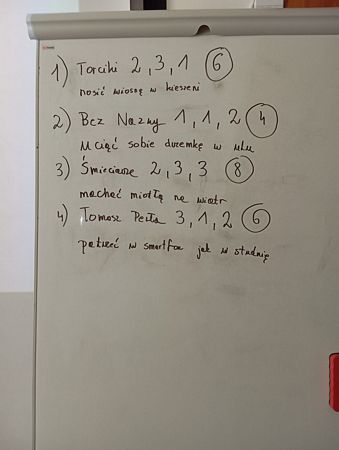 1) Torciki 2, 3, 1 6
nosić wiosnę w kieszeni
2) Bez Nazwy 1, 1, 2 4
Uciąć sobie drzemkę w ulu
3) Śmieciarze 2, 3, 3 8
machać miotłą na wiatr
4) Tomasz Perła 3, 1, 2 6
patrzeć w smartfon jak w studnię